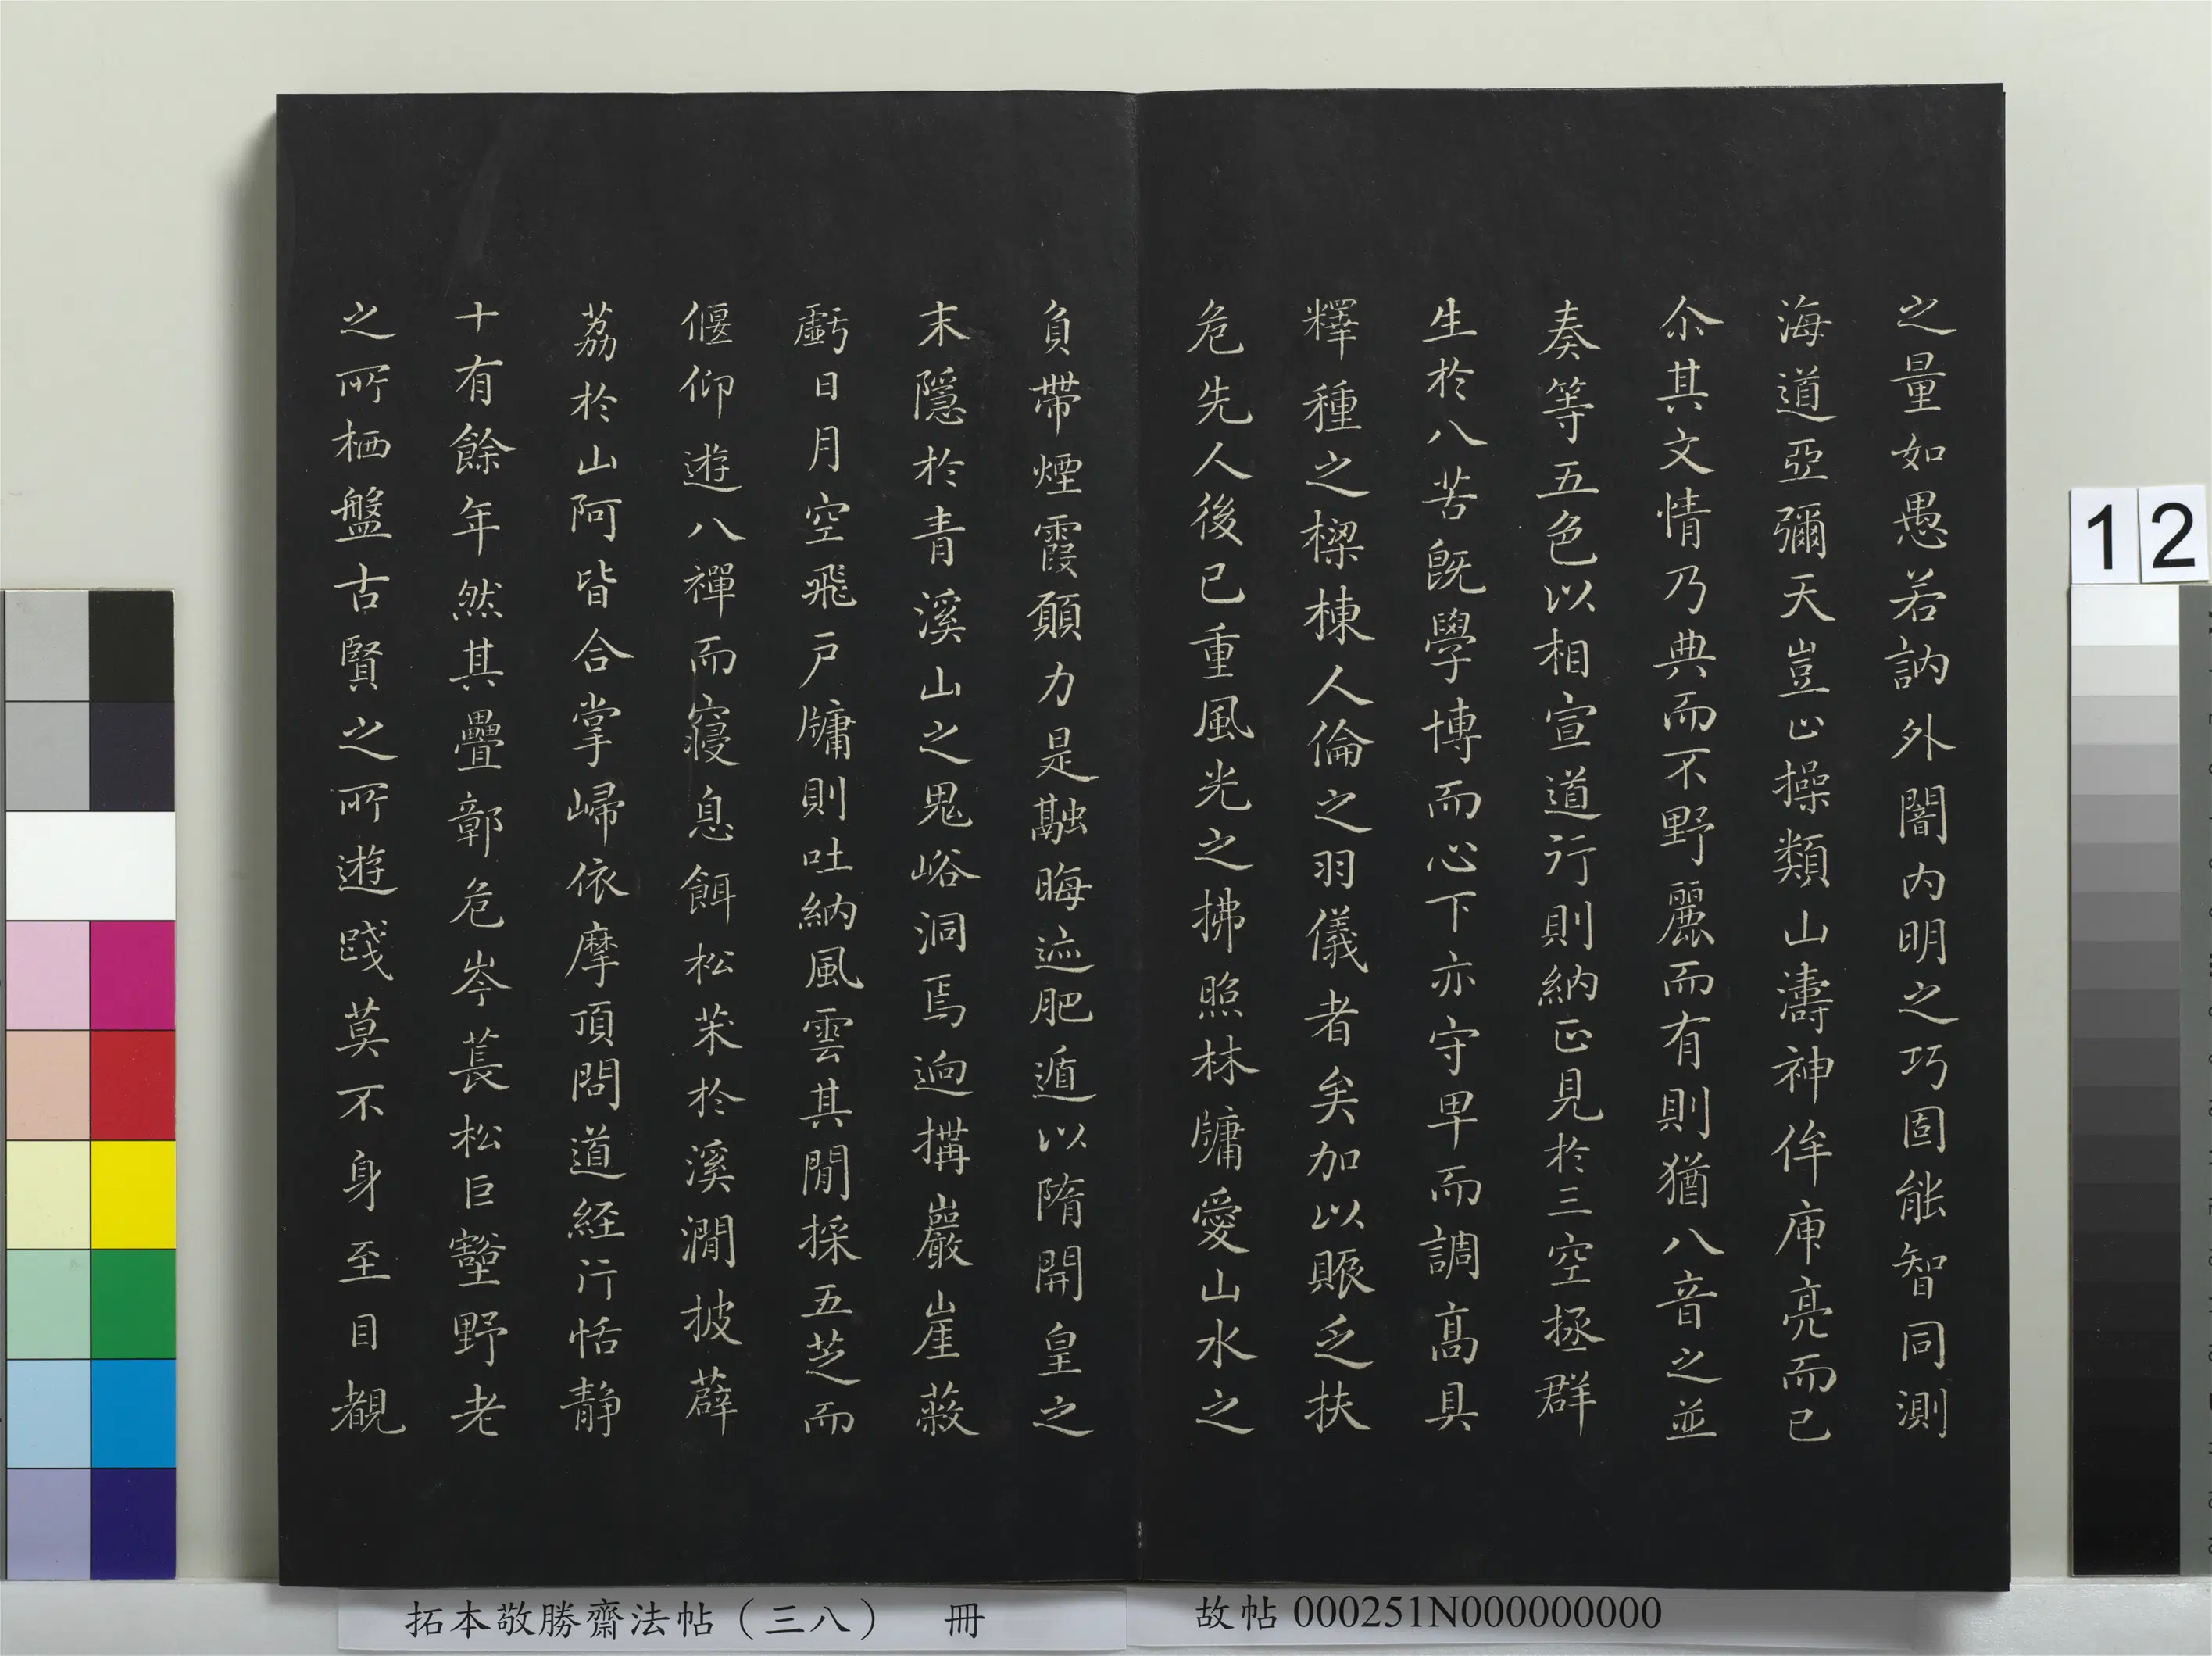 之量如愚若訥外闇內明之巧固能智同測
海道亞彌天豈止操類山濤神侔庾亮而已
尒其文情乃典而不野麗而有則猶八音之並
奏等五色以相宣道行則納正見於三空拯群
生於八苦既學博而心下亦守卑而調高具
釋種之樑棟人倫之羽儀者矣加以賑乏扶
危先人後已重風光之拂照林牖愛山水之
負帶煙霞願力是融晦迹肥遁以隋開皇之
末隱於青溪山之鬼峪洞焉逈搆巖崖蔽
虧日月空飛戶牖則吐納風雲其閒採五芝而
偃仰遊八禪而寢息餌松茱於溪澗披薜
荔於山阿皆合掌歸依摩頂問道経行恬静
十有餘年然其疊鄣危岑萇松巨壑野老
之所栖盤古賢之所遊踐莫不身至目覩
12
拓本敬勝齋法帖（三八） 冊
故帖 000251N000000000